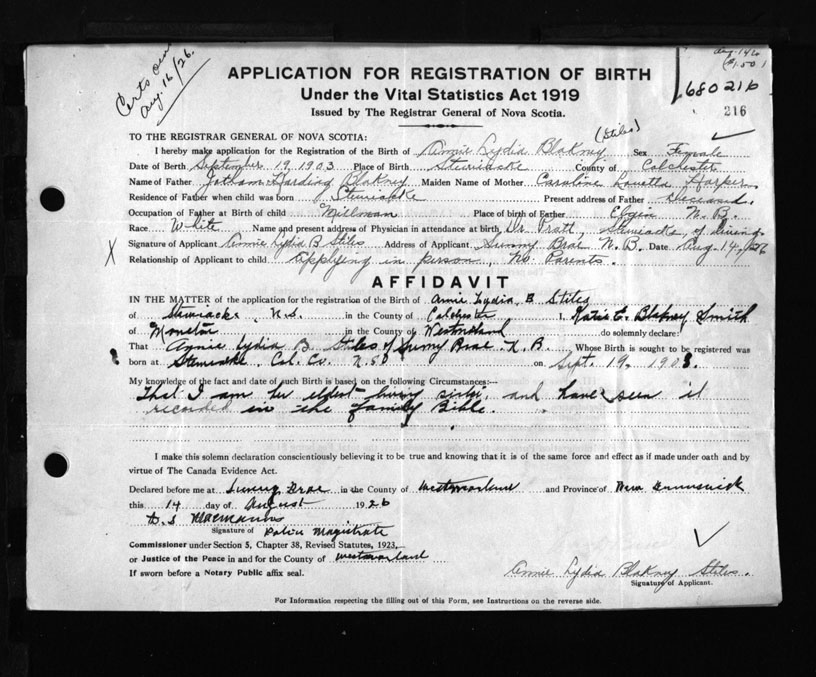 Certs own
Aug 16/26.
Aug. 14/26
($1.50)
680216
216
APPLICATION FOR REGISTRATION OF BIRTH
Under the Vital Statistics Act 1919
Issued by The Registrar General of Nova Scotia.
TO THE REGISTRAR GENERAL OF NOVA SCOTIA:
(Stiles)
I hereby make application for the Registration of the Birth of Annie Lydia Blakney Sex Female
Date of Birth September 19, 1903 Place of Birth Stewiacke County of Colchester
Name of Father Jotham Harding Blakney Maiden Name of Mother Caroline Loretta Harper
Residence of Father when child was born Stewiacke Present address of Father deceased.
Occupation of Father at Birth of child Millman Place of birth of Father Elgin N. B.
Race White Name and present address of Physician in attendance at birth Dr. Pratt, Stewiacke, if living.
Signature of Applicant Annie Lydia B Stiles Address of Applicant Sunny Brae N. B. Date Aug. 14,/26
X Relationship of Applicant to child Applying in person, No Parents.
AFFIDAVIT
IN THE MATTER of the application for the registration of the Birth of Annie Lydia B Stiles
of Stewiacke, N.S. in the County of Colchester I, Katie E. Blakney Smith
of Moncton in the County of Westmorland do solemnly declare:
That Annie Lydia B Stiles of Sunny Brae. N. B. Whose Birth is sought to be registered was
born at Stewiacke, Col. Co. N.S. on Sept. 19, 1903.
My knowledge of the fact and date of such Birth is based on the following Circumstances:—
That I am her eldest living sister, and have seen it
recorded in the family Bible.
I make this solemn declaration conscientiously believing it to be true and knowing that it is of the same force and effect as if made under oath and by
virtue of The Canada Evidence Act.
Declared before me at Sunny Brae in the County of Westmorland and Province of New Brunswick
this 14 day of August 1926
Signature of Police Magistrate
Commissioner under Section 5, Chapter 38, Revised Statutes, 1923,
or Justice of the Peace in and for the County of Westmorland
If sworn before a Notary Public affix seal.
Annie Lydia Blakney Stiles.
Signature of Applicant.
For Information respecting the filling out of this Form, see Instructions on the reverse side.